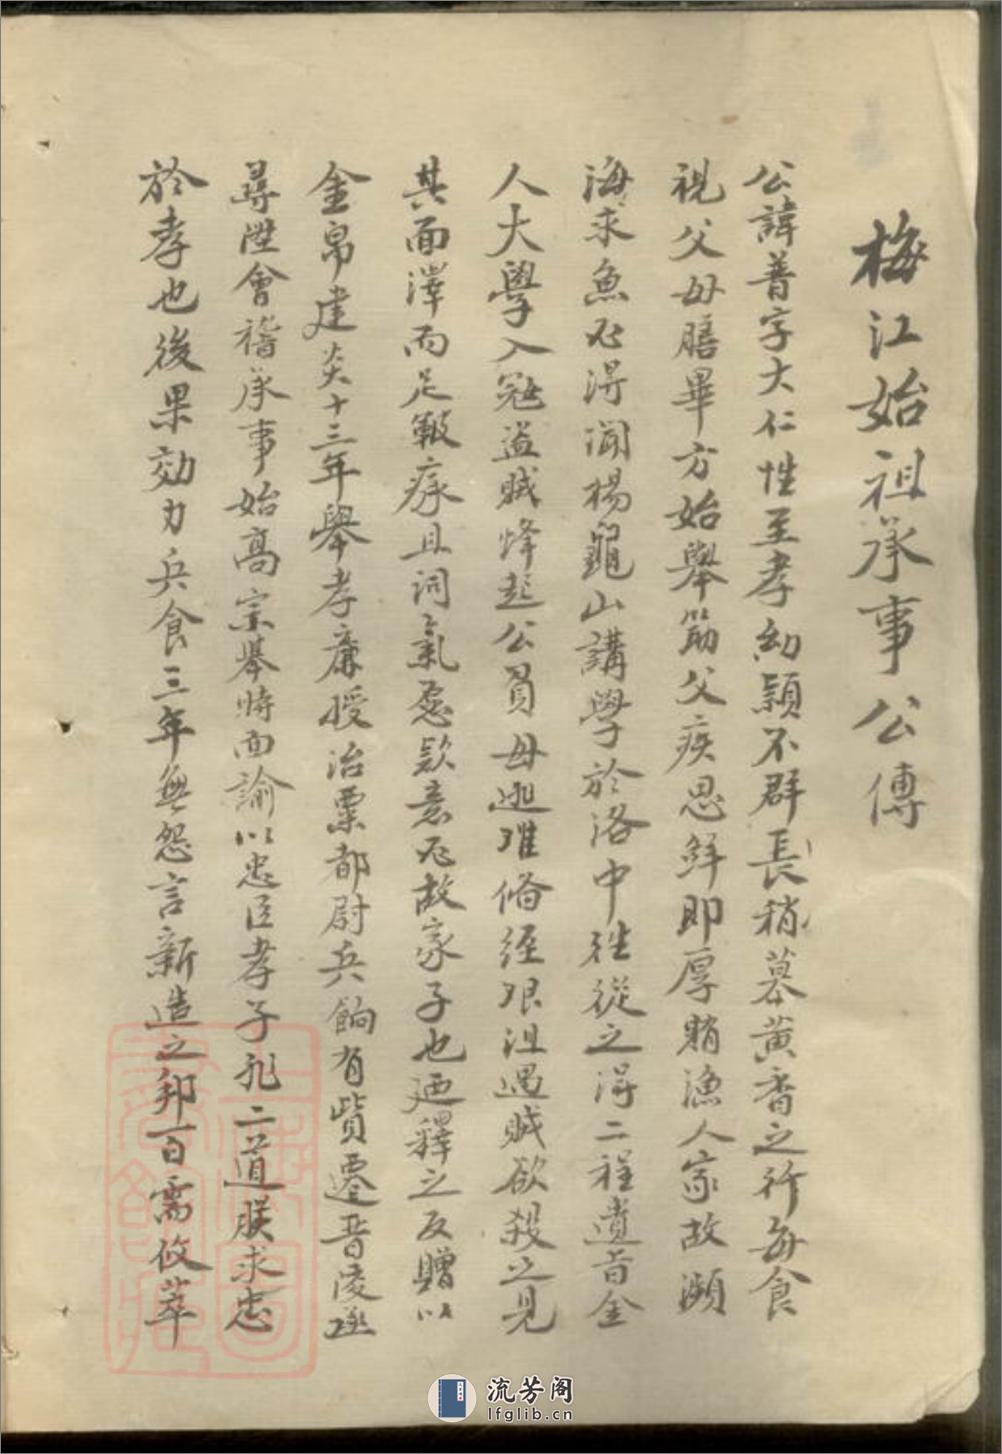 梅江始祖承事公傳
公諱普字大仁性至孝幼穎不群長稍慕黃香之行每食
視父母膳畢方始舉筯父疾思鮮即厚賂漁人家故瀕
海求魚不淂聞楊龜山講學於洛中徃從之淂二程遺旨金
人大學入冦盗賊烽起公負母逃难俻经艰沮遇賊欲殺之見
其面澤而足皸瘃且詞氣愿欵意不故家子也廼釋之反贈以
金帛建炎十三年舉孝廉授治粟都尉兵餉有貲遷晋陵丞
尋陞會稽承事始高宗舉時面諭以忠臣孝子非二道朕求忠
於孝也後果効力兵食三年無怨言新造之邦百需攸萃
流芳阁
lfglib.cn